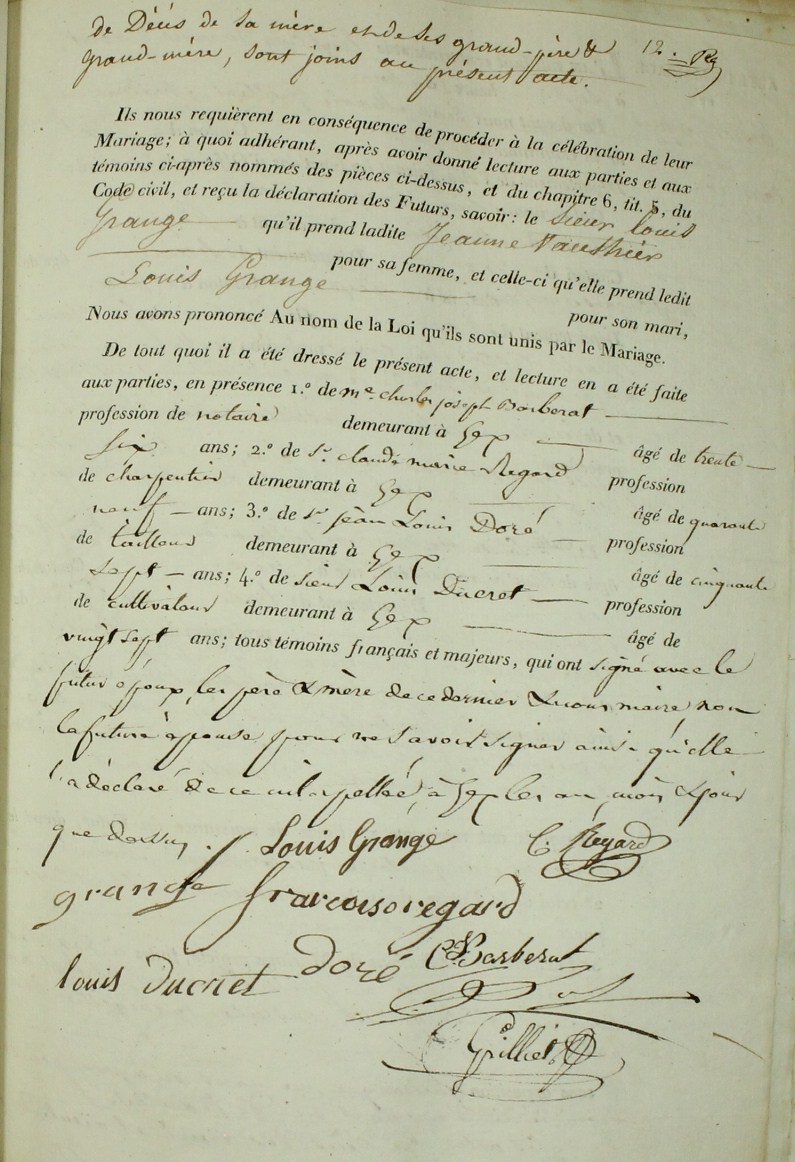 de Décès de sa mère et de ses grand-père &
grand-mère, sont joins au présent acte.
12.
Ils nous requièrent en conséquence de procéder à la célébration de leur
Mariage; à quoi adhérant, après avoir donné lecture aux parties et aux
témoins ci-après nommés des pièces ci-dessus, et du chapitre 6, tit. 5, du
Code civil, et reçu la déclaration des Futurs, savoir: le sieur Louis
Grange qu'il prend ladite Jeanne Vauthier
pour sa femme, et celle-ci qu'elle prend ledit
Louis Grange pour son mari,
Nous avons prononcé Au nom de la Loi qu'ils sont unis par le Mariage.
De tout quoi il a été dressé le présent acte, et lecture en a été faite
aux parties, en présence 1.º de me. charles joseph Barberat
profession de notaire demeurant à Gex âgé de trente
six ans; 2.º de sr. claude marie Regard profession
de charpentier demeurant à Gex âgé de quarante
neuf ans; 3.º de sr. jean Louis Doré profession
de tailleur demeurant à Gex âgé de cinquante
sept ans; 4.º de sieur Louis Ducret profession
de cultivateur demeurant à Gex âgé de
vingt sept ans; tous témoins français et majeurs, qui ont signé avec le
futur époux, les père & mère de ce dernier & nous maire, non
la future épouse pour ne savoir signer ainsi qu'elle
l'a déclaré de ce interpellée, à Gex les an, mois & jour
que dessus.
Louis Grange C. Regard
grange francoise regard
louis Ducret Doré Barberat
Grillet